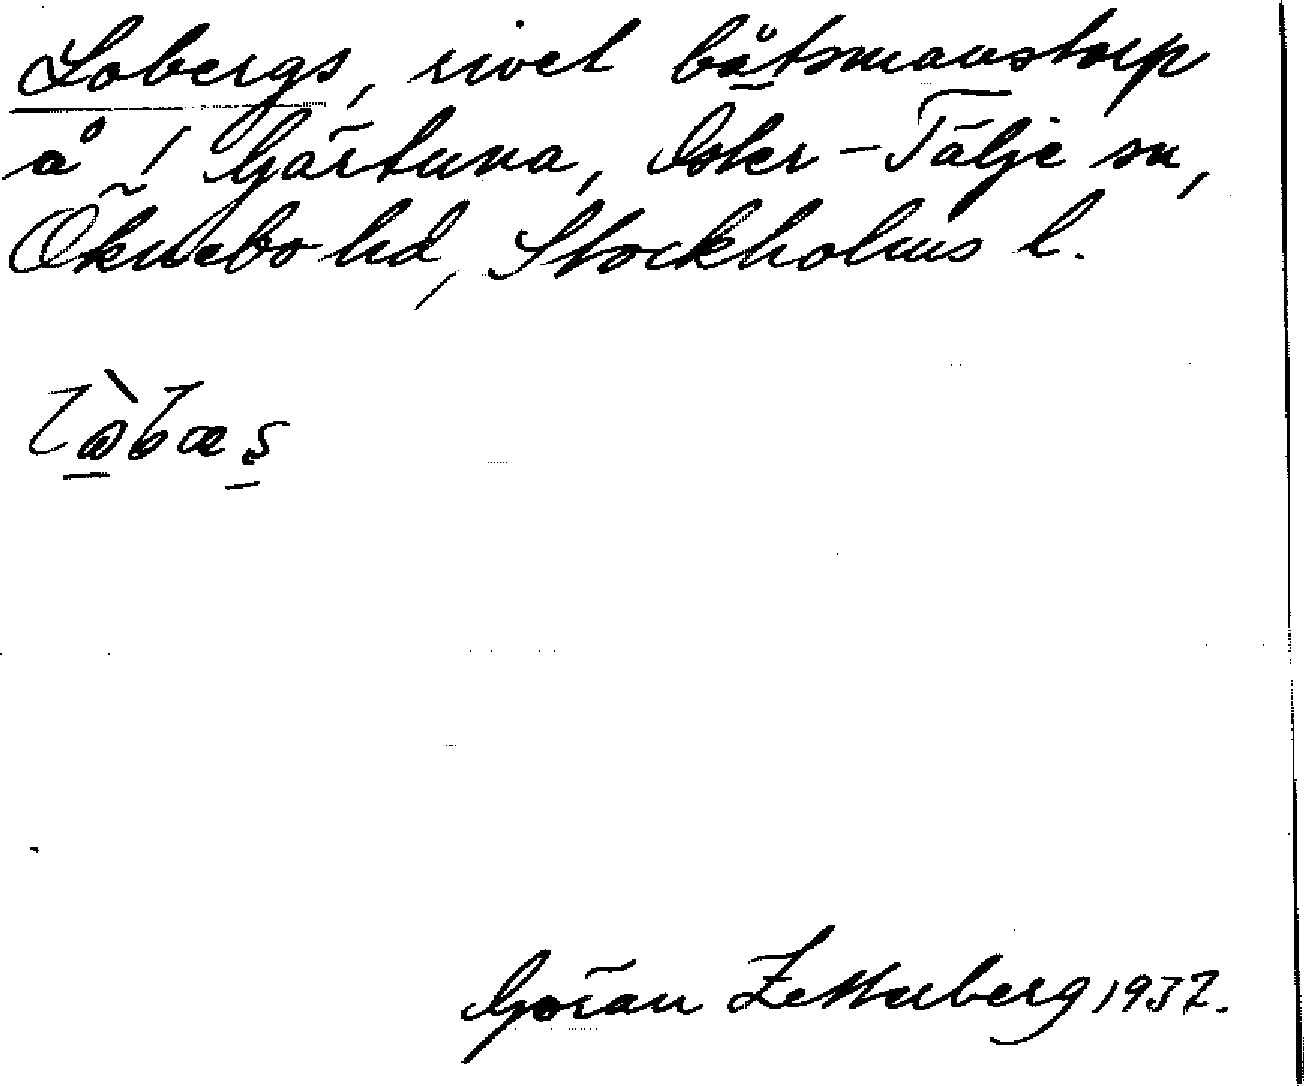 Lobergs, rivet båtsmanstorp
å / Gärtuna, Öster-Tälje sn,
Öknebo hd, Stockholms l.
Göran Zetterberg 1937.